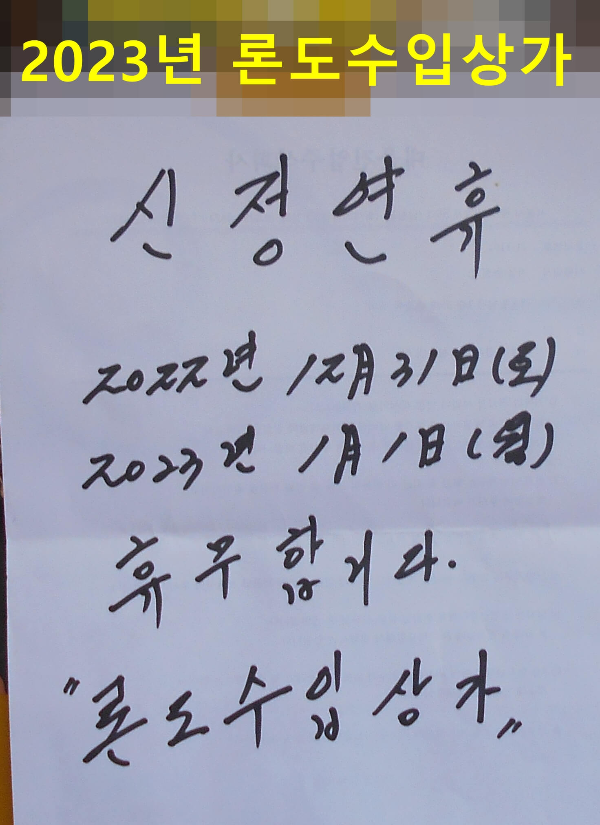 2023년 론도수입상가
신정연휴
2022년 12月 31日(토)
2023년 1月 1日(일)
휴무합니다.
"론도수입상가"